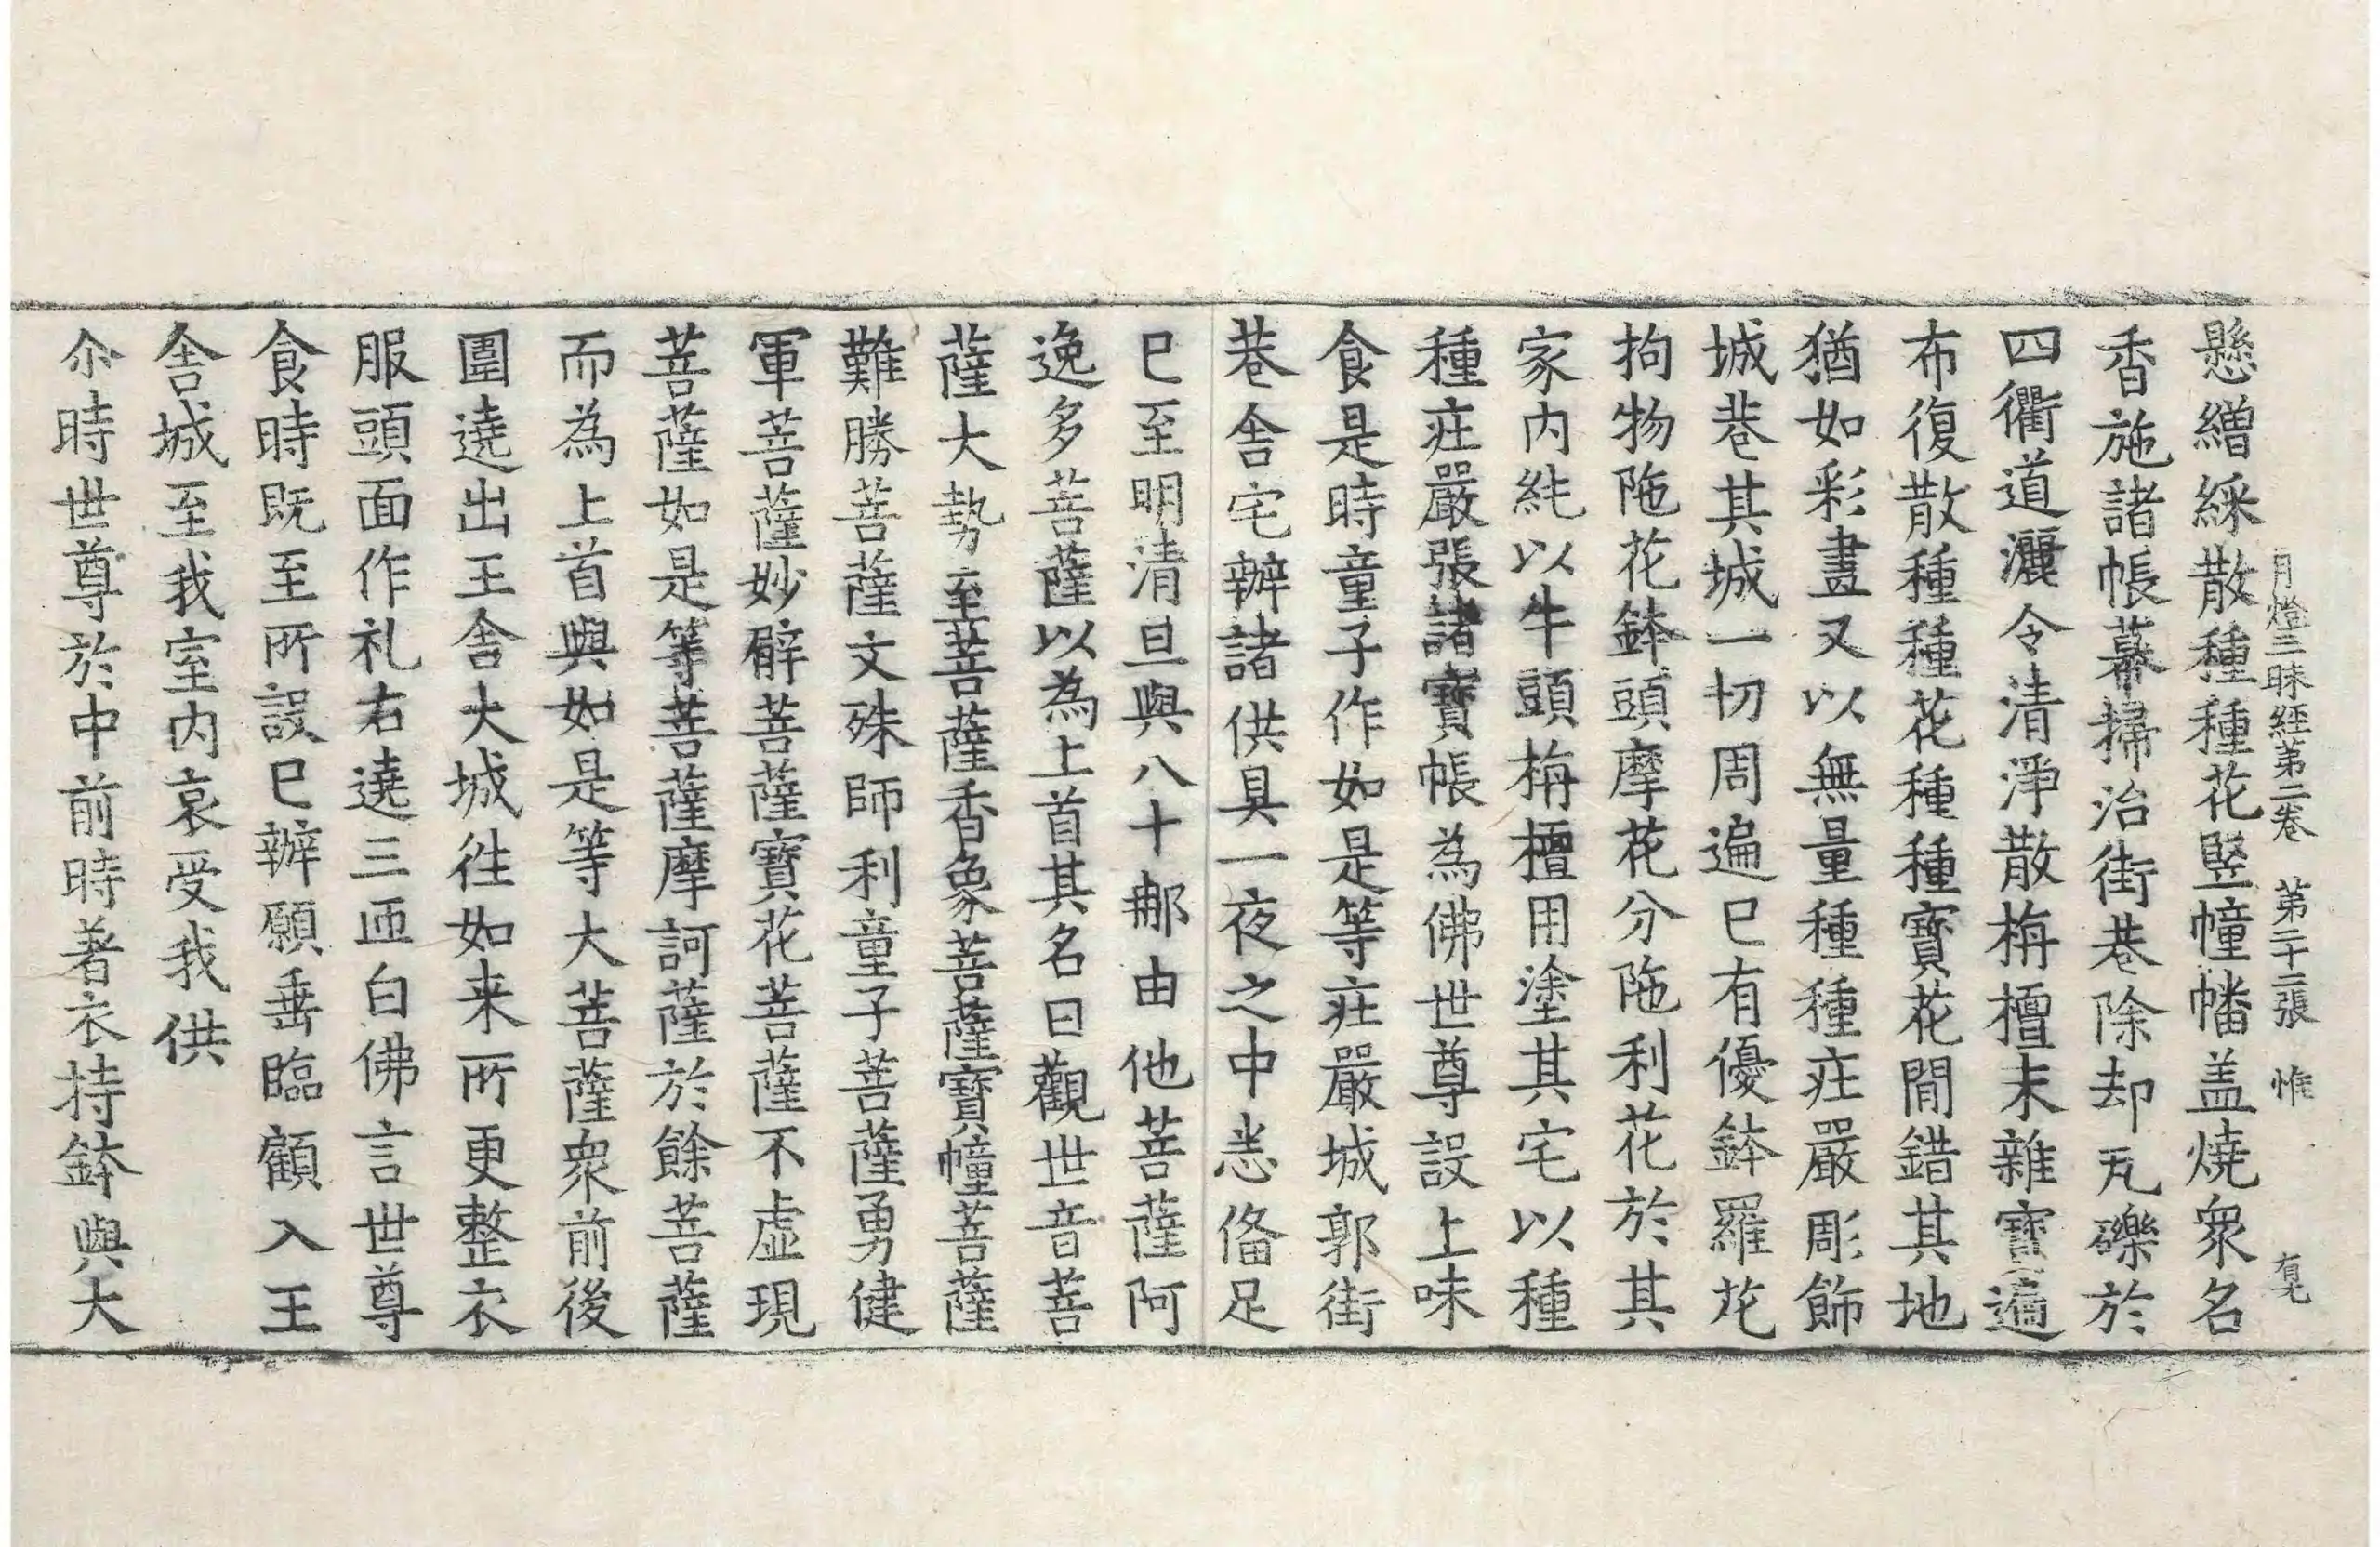 懸繒綵散種種花竪幢幡盖燒衆名
月燈三昧經第二卷　第二十二張　惟　有見
香施諸帳幕掃治街巷除却瓦礫於
四衢道灑令清淨散栴檀末雜寶遍
布復散種種花種種寶花間錯其地
猶如彩畫又以無量種種莊嚴彫飾
城巷其城一切周遍已有優鉢羅花
拘物陁花鉢頭摩花分陁利花於其
家內純以牛頭栴檀用塗其宅以種
種莊嚴張諸寶帳為佛世尊設上味
食是時童子作如是等莊嚴城郭街
巷舍宅辦諸供具一夜之中悉俻足
已至明清旦與八十那由他菩薩阿
逸多菩薩以為上首其名曰觀世音菩
薩大勢至菩薩香象菩薩寶幢菩薩
難勝菩薩文殊師利童子菩薩勇健
軍菩薩妙臂菩薩寶花菩薩不虛現
菩薩如是等菩薩摩訶薩於餘菩薩
而為上首與如是等大菩薩衆前後
圍遶出王舍大城往如来所更整衣
服頭面作礼右遶三匝白佛言世尊
食時既至所設已辦願垂臨顧入王
舍城至我室內哀受我供
尒時世尊於中前時著衣持鉢與大